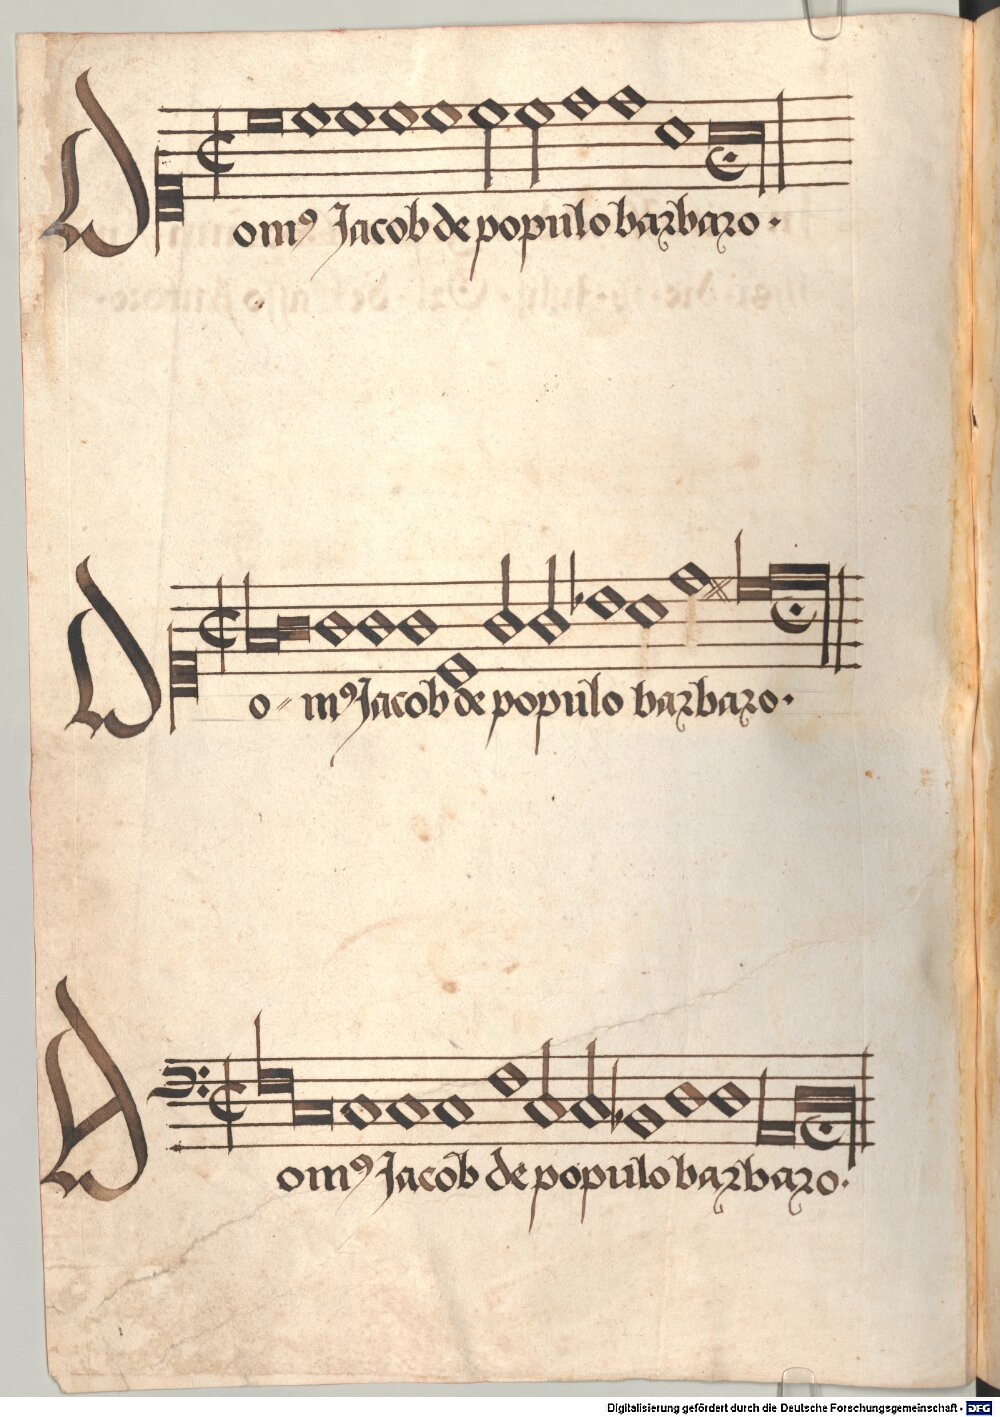 Domꝰ Jacob de populo barbaro.
Do-mꝰ Jacob de populo barbaro.
Domꝰ Jacob de populo barbaro.
Digitalisierung gefördert durch die Deutsche Forschungsgemeinschaft - DFG